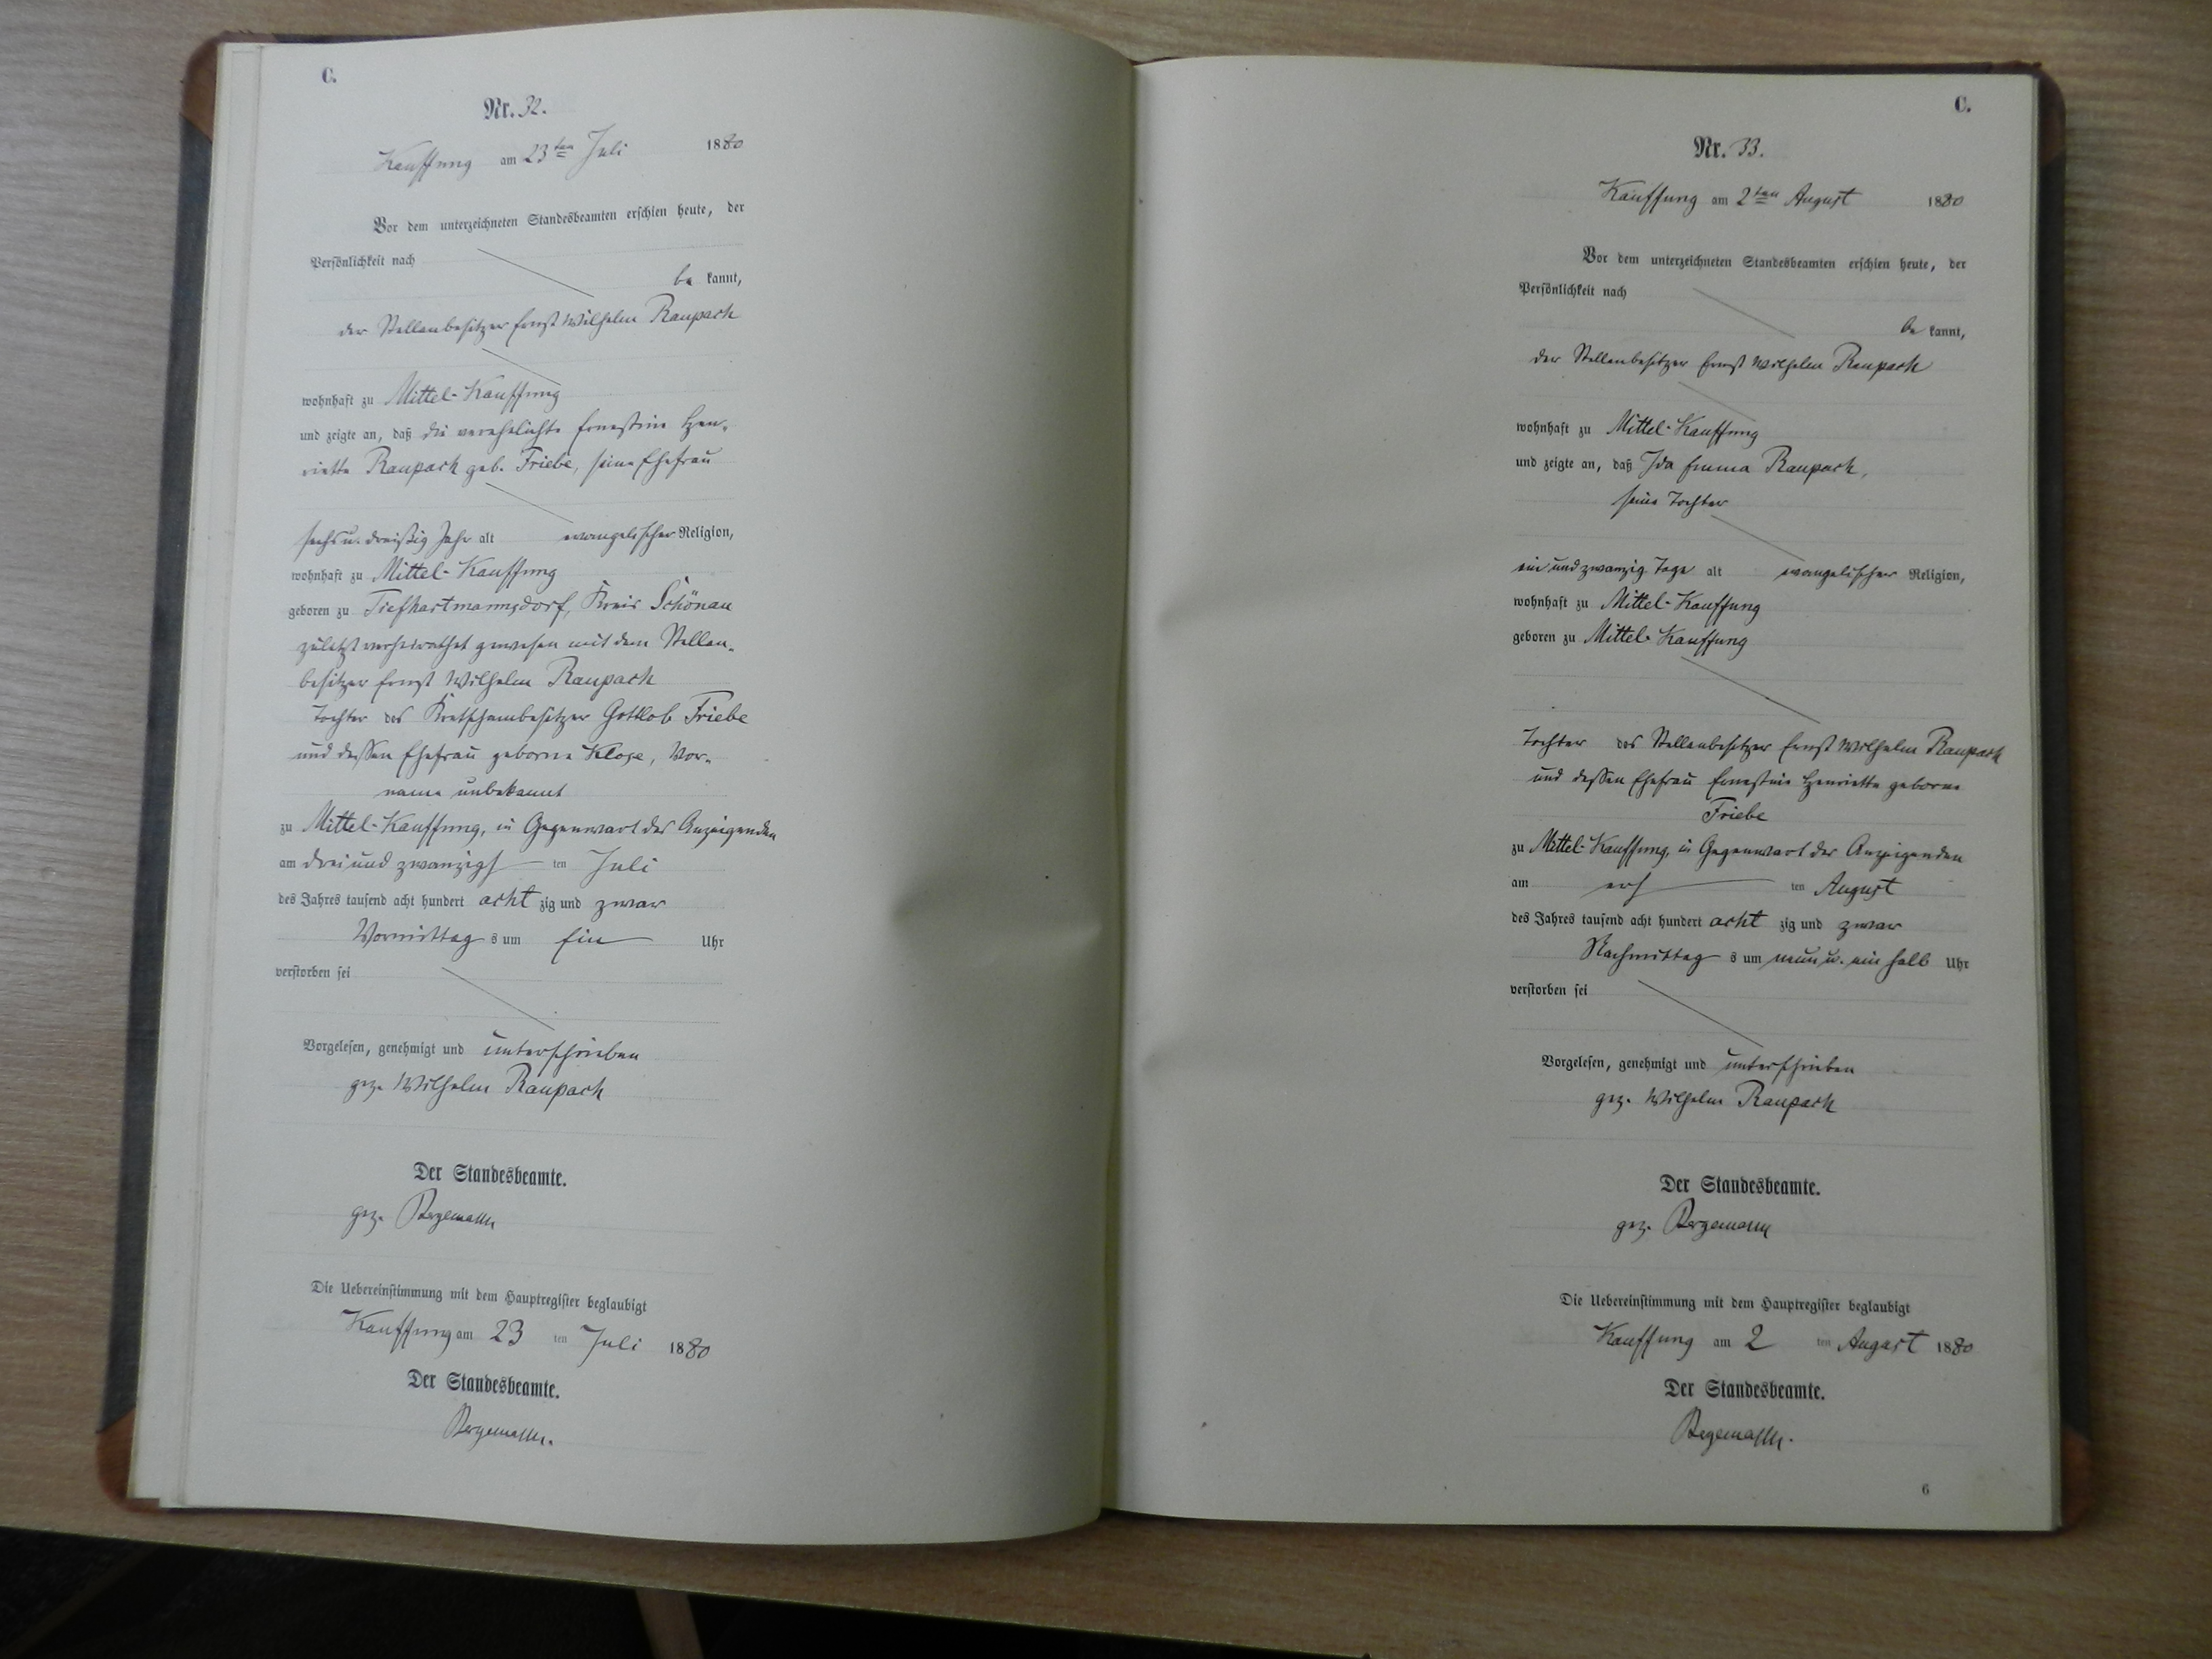 C.
Nr. 32.
Kauffung am 23ten Juli 1880
Vor dem unterzeichneten Standesbeamten erschien heute, der
Persönlichkeit nach
be kannt,
der Stellenbesitzer Ernst Wilhelm Raupach
wohnhaft zu Mittel-Kauffung
und zeigte an, daß die verehelichte Ernestine Hen-
riette Raupach geb. Friebe, seine Ehefrau
sechs u. dreißig Jahr alt evangelischer Religion,
wohnhaft zu Mittel-Kauffung
geboren zu Tiefhartmannsdorf, Kreis Schönau
zuletzt verheirathet gewesen mit dem Stellen-
besitzer Ernst Wilhelm Raupach
Tochter des Kretschambesitzer Gottlob Friebe
und dessen Ehefrau geborne Klose, Vor-
name unbekannt
zu Mittel-Kauffung, in Gegenwart des Anzeigenden
am drei und zwanzigs ten Juli
des Jahres tausend acht hundert acht zig und zwar
Vormittag s um Ein Uhr
verstorben sei
Vorgelesen, genehmigt und unterschrieben
gez. Wilhelm Raupach
Der Standesbeamte.
gez. Bergemann
Die Uebereinstimmung mit dem Hauptregister beglaubigt
Kauffung am 23 ten Juli 1880
Der Standesbeamte.
Bergemann.
C.
Nr. 33.
Kauffung am 2ten August 1880
Vor dem unterzeichneten Standesbeamten erschien heute, der
Persönlichkeit nach
be kannt,
der Stellenbesitzer Ernst Wilhelm Raupach
wohnhaft zu Mittel-Kauffung
und zeigte an, daß Ida Emma Raupach,
seine Tochter
ein und zwanzig Tage alt evangelischer Religion,
wohnhaft zu Mittel-Kauffung
geboren zu Mittel-Kauffung
Tochter des Stellenbesitzer Ernst Wilhelm Raupach
und dessen Ehefrau Ernestine Henriette geborne
Friebe
zu Mittel-Kauffung, in Gegenwart des Anzeigenden
am ers ten August
des Jahres tausend acht hundert acht zig und zwar
Nachmittag s um neun u. ein halb Uhr
verstorben sei
Vorgelesen, genehmigt und unterschrieben
gez. Wilhelm Raupach
Der Standesbeamte.
gez. Bergemann
Die Uebereinstimmung mit dem Hauptregister beglaubigt
Kauffung am 2 ten August 1880
Der Standesbeamte.
Bergemann.
6